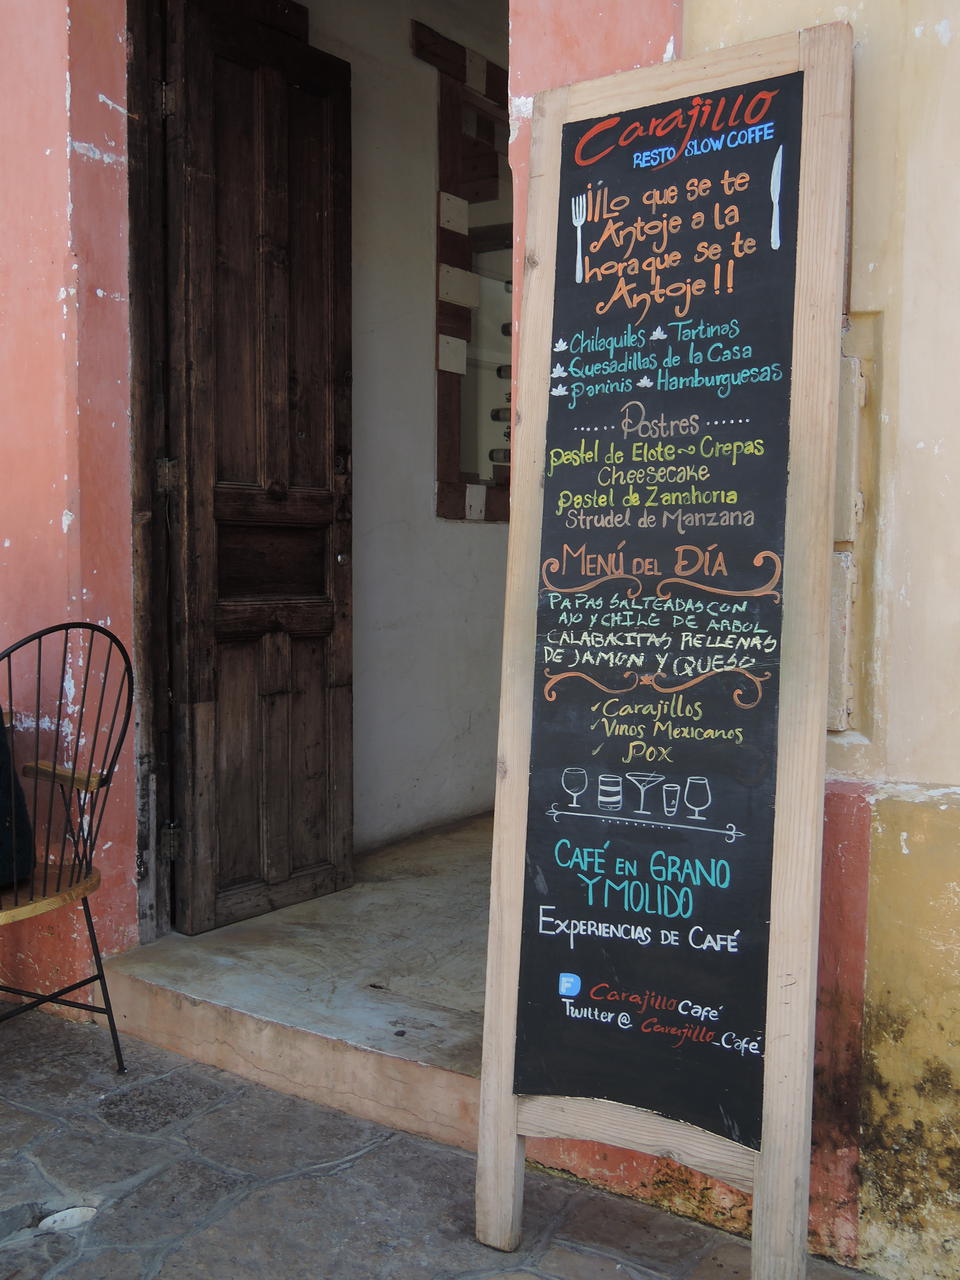 Carajillo
RESTO SLOW COFFE
¡¡Lo que se te
Antoje a la
hora que se te
Antoje!!
Chilaquiles Tartinas
Quesadillas de la Casa
Paninis Hamburguesas
...... Postres ......
Pastel de Elote ~ Crepas
Cheesecake
Pastel de Zanahoria
Strudel de Manzana
MENÚ DEL DÍA
PAPAS SALTEADAS CON
AJO Y CHILE DE ARBOL
CALABACITAS RELLENAS
DE JAMON Y QUESO
✓Carajillos
✓Vinos Mexicanos
✓ Pox
CAFÉ EN GRANO
Y MOLIDO
EXPERIENCIAS DE CAFÉ
F Carajillo Café
Twitter@ Carajillo_Café